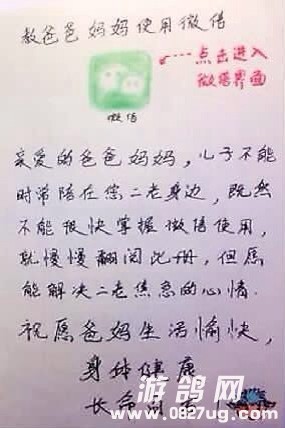 教爸爸妈妈使用微信
点击进入
微信界面
微信
亲爱的爸爸妈妈，儿子不能
时常陪在您二老身边，既然
不能很快掌握微信使用，
就慢慢翻阅此册，但愿
能解决二老焦急的心情.
祝愿爸妈生活愉快，
身体健康
长命
游鸽网
www.0827ug.com